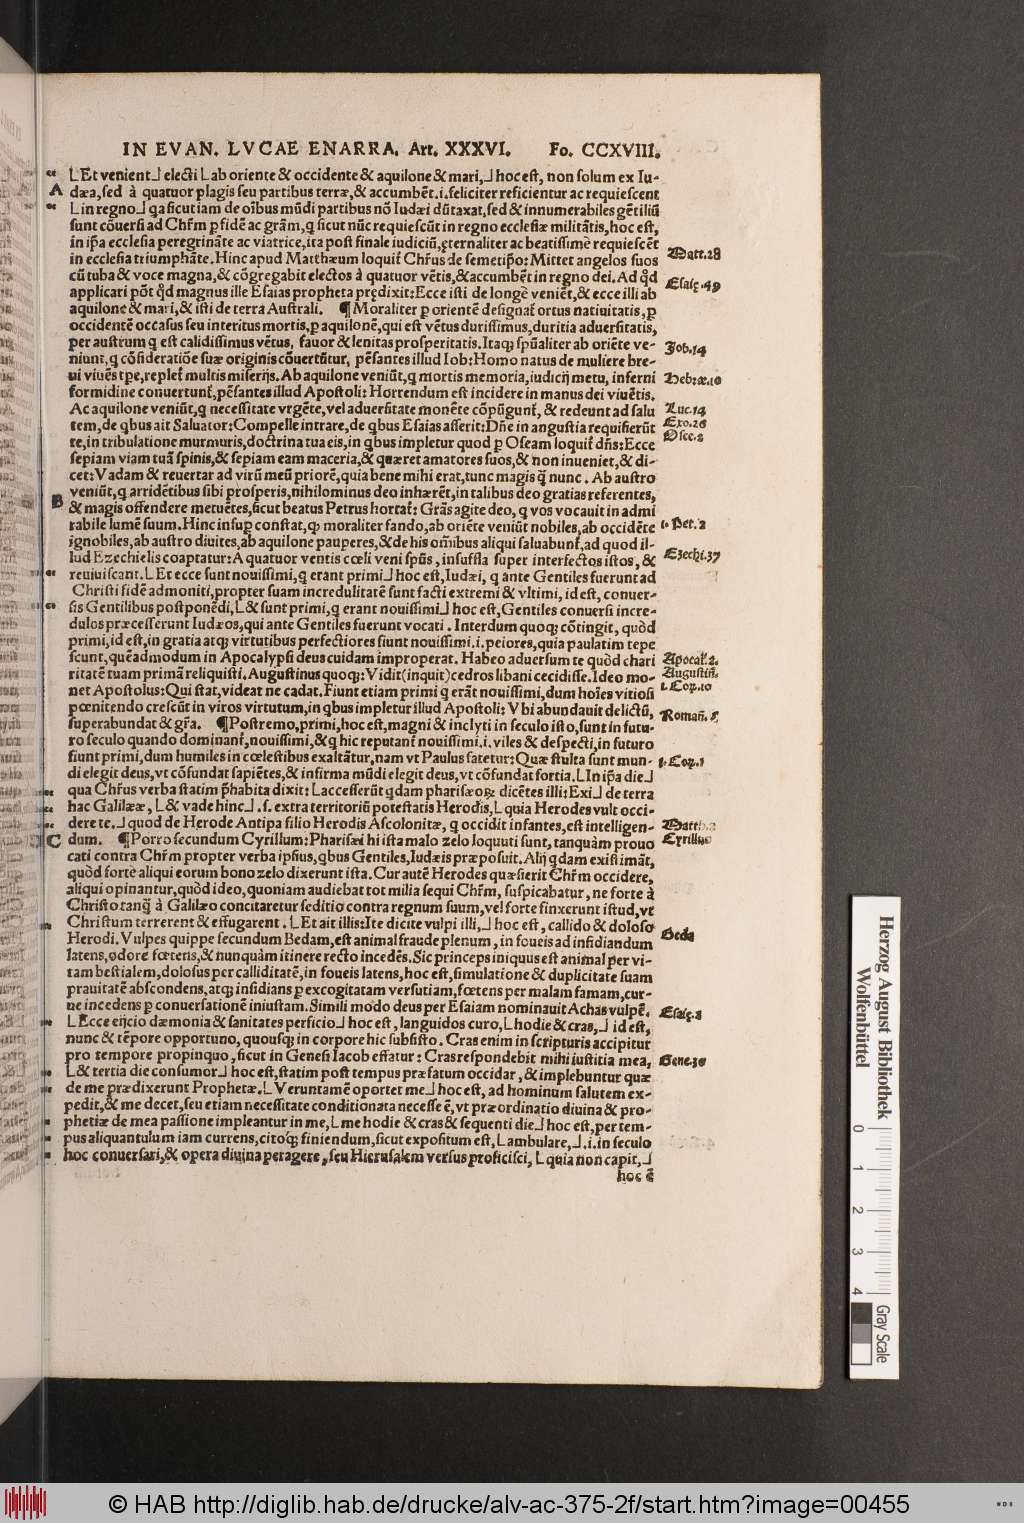 IN EVAN. LVCAE ENARRA. Art. XXXVI. Fo. CCXVIII.
LEt venient⅃ electi Lab oriente & occidente & aquilone & mari,⅃ hoc est, non solum ex Iu-
A dæa, sed à quatuor plagis seu partibus terræ, & accumbẽt.i.feliciter reficientur ac requiescent
Lin regno⅃ qa sicut iam de oĩbus mũdi partibus nõ Iudæi dũtaxat, sed & innumerabiles gẽtiliũ
sunt cõuersi ad Chr̃m p fidẽ ac grãm, q sicut nũc requiescũt in regno ecclesiæ militãtis, hoc est,
in ip̃a ecclesia peregrinãte ac viatrice, ita post finale iudiciũ, ęternaliter ac beatissimè requiescẽt
in ecclesia triumphãte. Hinc apud Matthæum loquit̃ Chr̃us de semetip̃o: Mittet angelos suos
Matt.28
cũ tuba & voce magna, & cõgregabit electos à quatuor vẽtis, & accumbẽt in regno dei. Ad qd̃
applicari põt qd̃ magnus ille Esaias propheta prędixit: Ecce isti de longè veniẽt, & ecce illi ab
Esaię.49
aquilone & mari, & isti de terra Australi. ¶ Moraliter p orientẽ designat̃ ortus natiuitatis, p
occidentẽ occasus seu interitus mortis, p aquilonẽ, qui est vẽtus durissimus, duritia aduersitatis,
per austrum q est calidissimus vẽtus, fauor & lenitas prosperitatis. Itaq; sp̃ualiter ab oriẽte ve-
niunt, q cõsideratiõe suæ originis cõuertũtur, pẽsantes illud Iob: Homo natus de muliere bre-
Job.14
ui viuẽs tpe, replet̃ multis miserijs. Ab aquilone veniũt, q mortis memoria, iudicij metu, inferni
formidine conuertunt̃, pẽsantes illud Apostoli: Horrendum est incidere in manus dei viuẽtis.
Hebræ.10
Ac aquilone veniũt, q necessitate vrgẽte, vel aduersitate monẽte cõpũgunt̃, & redeunt ad salu
Luc.14
tem, de qbus ait Saluator: Compelle intrare, de qbus Esaias asserit: Dñe in angustia requisierũt
Exo.26
te, in tribulatione murmuris, doctrina tua eis, in qbus impletur quod p Oseam loquit̃ dñs: Ecce
Osee.2
sepiam viam tuã spinis, & sepiam eam maceria, & quæret amatores suos, & non inueniet, & di-
cet: Vadam & reuertar ad virũ meũ priorẽ, quia bene mihi erat, tunc magis q̃ nunc. Ab austro
veniũt, q arridẽtibus sibi prosperis, nihilominus deo inhærẽt, in talibus deo gratias referentes,
B & magis offendere metuẽtes, sicut beatus Petrus hortat̃: Grãs agite deo, q vos vocauit in admi
rabile lumẽ suum. Hinc insup constat, q; moraliter fando, ab oriẽte veniũt nobiles, ab occidẽte
1. Pet.2
ignobiles, ab austro diuites, ab aquilone pauperes, & de his om̃ibus aliqui saluabunt̃, ad quod il-
lud Ezechielis coaptatur: A quatuor ventis cœli veni sp̃us, insuffla super interfectos istos, &
Ezechi.37
reuiuiscant. LEt ecce sunt nouissimi, q erant primi⅃ hoc est, Iudæi, q ante Gentiles fuerunt ad
Christi fidẽ admoniti, propter suam incredulitatẽ sunt facti extremi & vltimi, id est, conuer-
sis Gentilibus postponẽdi, L& sunt primi, q erant nouissimi⅃ hoc est, Gentiles conuersi incre-
dulos præcesserunt Iudæos, qui ante Gentiles fuerunt vocati. Interdum quoq; cõtingit, quòd
primi, id est, in gratia atq; virtutibus perfectiores fiunt nouissimi.i.peiores, quia paulatim tepe
scunt, quẽadmodum in Apocalypsi deus cuidam improperat. Habeo aduersum te quòd chari
Apocal̃.2.
ritatẽ tuam primã reliquisti. Augustinus quoq;: Vidit(inquit)cedros libani cecidisse. Ideo mo-
Augustiñ.
net Apostolus: Qui stat, videat ne cadat. Fiunt etiam primi q erãt nouissimi, dum hoĩes vitiosi
1. Cor.10
pœnitendo crescũt in viros virtutum, in qbus impletur illud Apostoli: Vbi abundauit delictũ,
superabundat & gr̃a. ¶ Postremo, primi, hoc est, magni & inclyti in seculo isto, sunt in futu-
Romañ.5
ro seculo quando dominant̃, nouissimi, & q hic reputant̃ nouissimi.i.viles & despecti, in futuro
fiunt primi, dum humiles in cœlestibus exaltãtur, nam vt Paulus fatetur: Quæ stulta sunt mun-
1. Cor.1
di elegit deus, vt cõfundat sapiẽtes, & infirma mũdi elegit deus, vt cõfundat fortia. LIn ip̃a die⅃
qua Chr̃us verba statim p̃habita dixit: Laccesserũt qdam pharisæoꝝ dicẽtes illi: Exi⅃ de terra
hac Galilææ, L& vade hinc⅃.s.extra territoriũ potestatis Herodis, Lquia Herodes vult occi-
dere te.⅃ quod de Herode Antipa filio Herodis Ascolonitæ, q occidit infantes, est intelligen-
Matth.2
C dum. ¶ Porro secundum Cyrillum: Pharisæi hi ista malo zelo loquuti sunt, tanquàm prouo
Cyrillus
cati contra Chr̃m propter verba ipsius, qbus Gentiles, Iudæis præposuit. Alij qdam existimãt,
quòd fortè aliqui eorum bono zelo dixerunt ista. Cur autẽ Herodes quæsierit Chr̃m occidere,
aliqui opinantur, quòd ideo, quoniam audiebat tot milia sequi Chr̃m, suspicabatur, ne forte à
Christo tanq̃ à Galilæo concitaretur seditio contra regnum suum, vel forte finxerunt istud, vt
Christum terrerent & effugarent. LEt ait illis: Ite dicite vulpi illi,⅃ hoc est, callido & doloso
Herodi. Vulpes quippe secundum Bedam, est animal fraude plenum, in foueis ad insidiandum
Beda
latens, odore fœtens, & nunquàm itinere recto incedẽs. Sic princeps iniquus est animal per vi-
tam bestialem, dolosus per calliditatẽ, in foueis latens, hoc est, simulatione & duplicitate suam
prauitatẽ abscondens, atq; insidians p excogitatam versutiam, fœtens per malam famam, cur-
ue incedens p conuersationẽ iniustam. Simili modo deus per Esaiam nominauit Achas vulpẽ.
LEcce eijcio dæmonia & sanitates perficio⅃ hoc est, languidos curo, Lhodie & cras,⅃ id est,
Esaię.8
nunc & tẽpore opportuno, quousq; in corpore hic subsisto. Cras enim in scripturis accipitur
pro tempore propinquo, sicut in Genesi Iacob effatur: Cras respondebit mihi iustitia mea,
Gene.30
L& tertia die consumor⅃ hoc est, statim post tempus præfatum occidar, & implebuntur quæ
de me prædixerunt Prophetæ. LVeruntamẽ oportet me⅃ hoc est, ad hominum salutem ex-
pedit, & me decet, seu etiam necessitate conditionata necesse ẽ, vt præordinatio diuina & pro-
phetiæ de mea passione impleantur in me, Lme hodie & cras & sequenti die⅃ hoc est, per tem-
pus aliquantulum iam currens, citoq; finiendum, sicut expositum est, Lambulare,⅃.i.in seculo
hoc conuersari, & opera diuina peragere, seu Hierusalem versus proficisci, Lquia non capit,⅃
hoc ẽ
Herzog August Bibliothek
Wolfenbüttel
0 1 2 3 4
Gray Scale
© HAB http://diglib.hab.de/drucke/alv-ac-375-2f/start.htm?image=00455